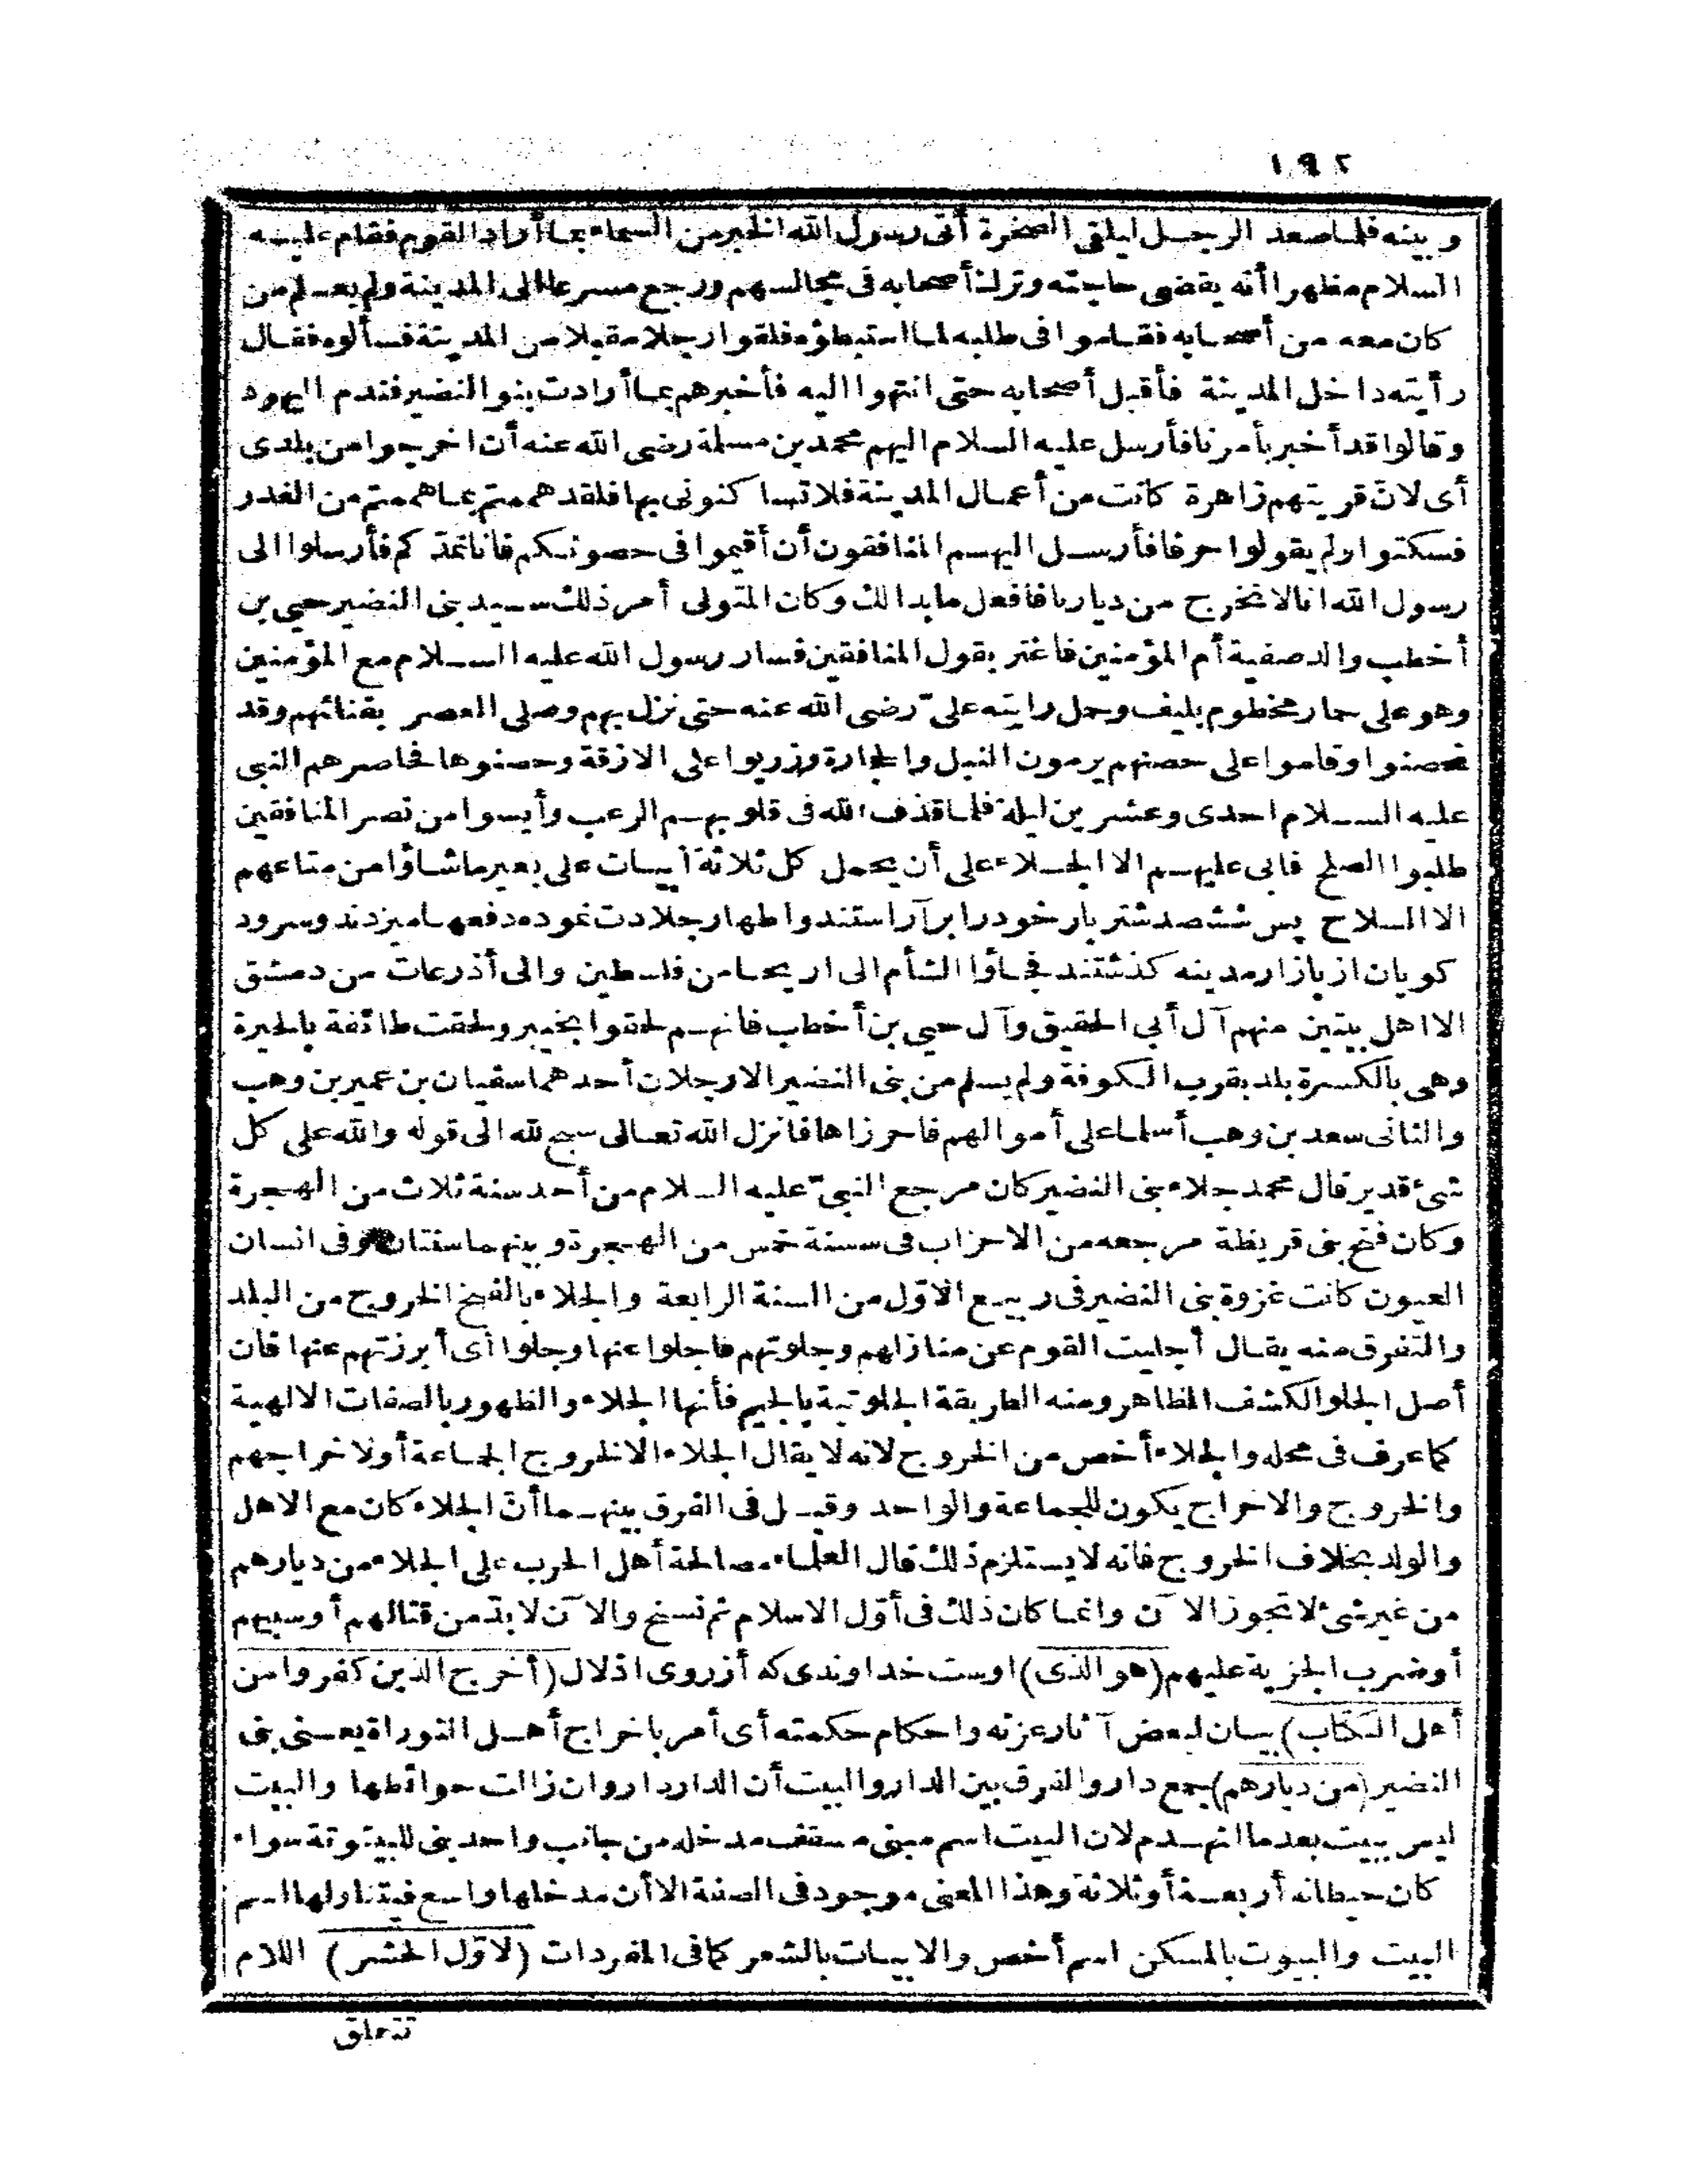 ١٩٢
وبينه فلما صعد الرجل ليلقى الصخرة أتى رسول الله الخبر من السماء بما أراد القوم فقام عليه
السلام مظهرا أنه يقضى حاجته وترك أصحابه فى مجالسهم ورجع مسرعا الى المدينة ولم يعلم من
كان معه من أصحابه فقاموا فى طلبه لما استبطؤه فلقوا رجلا مقبلا من المدينة فسألوه فقال
رأيته داخل المدينة فأقبل أصحابه حتى انتهوا اليه فأخبرهم بما أرادت بنو النضير فندم اليهود
وقالوا قد أخبر بأمرنا فأرسل عليه السلام اليهم محمد بن مسلمة رضى الله عنه أن اخرجوا من بلدى
أى لان قريتهم زاهرة كانت من أعمال المدينة فلا تساكنونى بها فلقد هممتم بما هممتم من الغدر
فسكتوا ولم يقولوا حرفا فأرسل اليهم المنافقون أن أقيموا فى حصونكم فانا نمدّكم فأرسلوا الى
رسول الله انا لا نخرج من ديارنا فافعل ما بدا لك وكان المتولى أمر ذلك سيد بنى النضير حيي بن
أخطب والد صفية أم المؤمنين فاغتر بقول المنافقين فسار رسول الله عليه السلام مع المؤمنين
وهو على حمار مخطوم بليف وحمل رايته علىّ رضى الله عنه حتى نزل بهم وصلى العصر بفنائهم وقد
تحصنوا وقاموا على حصنهم يرمون النبل والحجارة وزربوا على الازقة وحصنوها فحاصرهم النبى
عليه السلام احدى وعشرين ليلة فلما قذف الله فى قلوبهم الرعب وأيسوا من نصر المنافقين
طلبوا الصلح فابى عليهم الا الجلاء على أن يحمل كل ثلاثة أبيات على بعير ما شاؤا من متاعهم
الا السلاح پس ششصد شتر بار خود را بر آراستند واظهار جلادت نموده دفعها ميزدند وسرود
كويان از بازار مدينه كذشتند فجاؤا الشأم الى اريحا من فلسطين والى أذرعات من دمشق
الا اهل بيتين منهم آل أبي الحقيق وآل حيي بن أخطب فانهم لحقوا بخيبر ولحقت طائفة بالحيرة
وهى بالكسرة بلد بقرب الكوفة ولم يسلم من بنى النضير الا رجلان أحدهما سفيان بن عمير بن وهب
والثانى سعد بن وهب أسلما على أموالهم فاحرزاها فانزل الله تعالى سبح لله الى قوله والله على كل
شئ قدير قال محمد جلاء بنى النضير كان مرجع النبىّ عليه السلام من أحد سنة ثلاث من الهجرة
وكان فتح بنى قريظة مرجعه من الاحزاب فى سنة خمس من الهجرة وبينهما سنتان وفى انسان
العيون كانت غزوة بنى النضير فى ربيع الاوّل من السنة الرابعة والجلاء بالفتح الخروج من البلد
والتفرق منه يقال أجليت القوم عن منازلهم وجلوتهم فاجلوا عنها وجلوا أى أبرزتهم عنها فان
أصل الجلو الكشف الظاهر ومنه الطريقة الجلوتية بالجيم فأنها الجلاء والظهور بالصفات الالهية
كما عرف فى محله والجلاء أخص من الخروج لانه لا يقال الجلاء الا لخروج الجماعة أو لاخراجهم
والخروج والاخراج يكون للجماعة والواحد وقيل فى الفرق بينهما أنّ الجلاء كان مع الاهل
والولد بخلاف الخروج فانه لا يستلزم ذلك قال العلماء مصالحة أهل الحرب على الجلاء من ديارهم
من غير شئ لا تجوز الآن وانما كان ذلك فى أوّل الاسلام ثم نسخ والآن لا بدّ من قتالهم أو سبيهم
أو ضرب الجزية عليهم (هو الذى) اوست خداوندى كه أز روى اذلال (أخرج الذين كفروا من
أهل الكتاب) بيان لبعض آثار عزته واحكام حكمته أى أمر باخراج أهل التوراة يعنى بنى
النضير (من ديارهم) جمع دار والفرق بين الدار والبيت أن الدار دار وان زالت حوائطها والبيت
ليس ببيت بعد ما انهدم لان البيت اسم مبنى مسقف مدخله من جانب واحد بنى للبيتوتة سواء
كان حيطانه أربعة أو ثلاثة وهذا المعنى موجود فى الصفة الا أن مدخلها واسع فيتناولها اسم
البيت والبيوت بالمسكن اسم أخص والابيات بالشعر كما فى المفردات (لاوّل الحشر) اللام
تتعلق